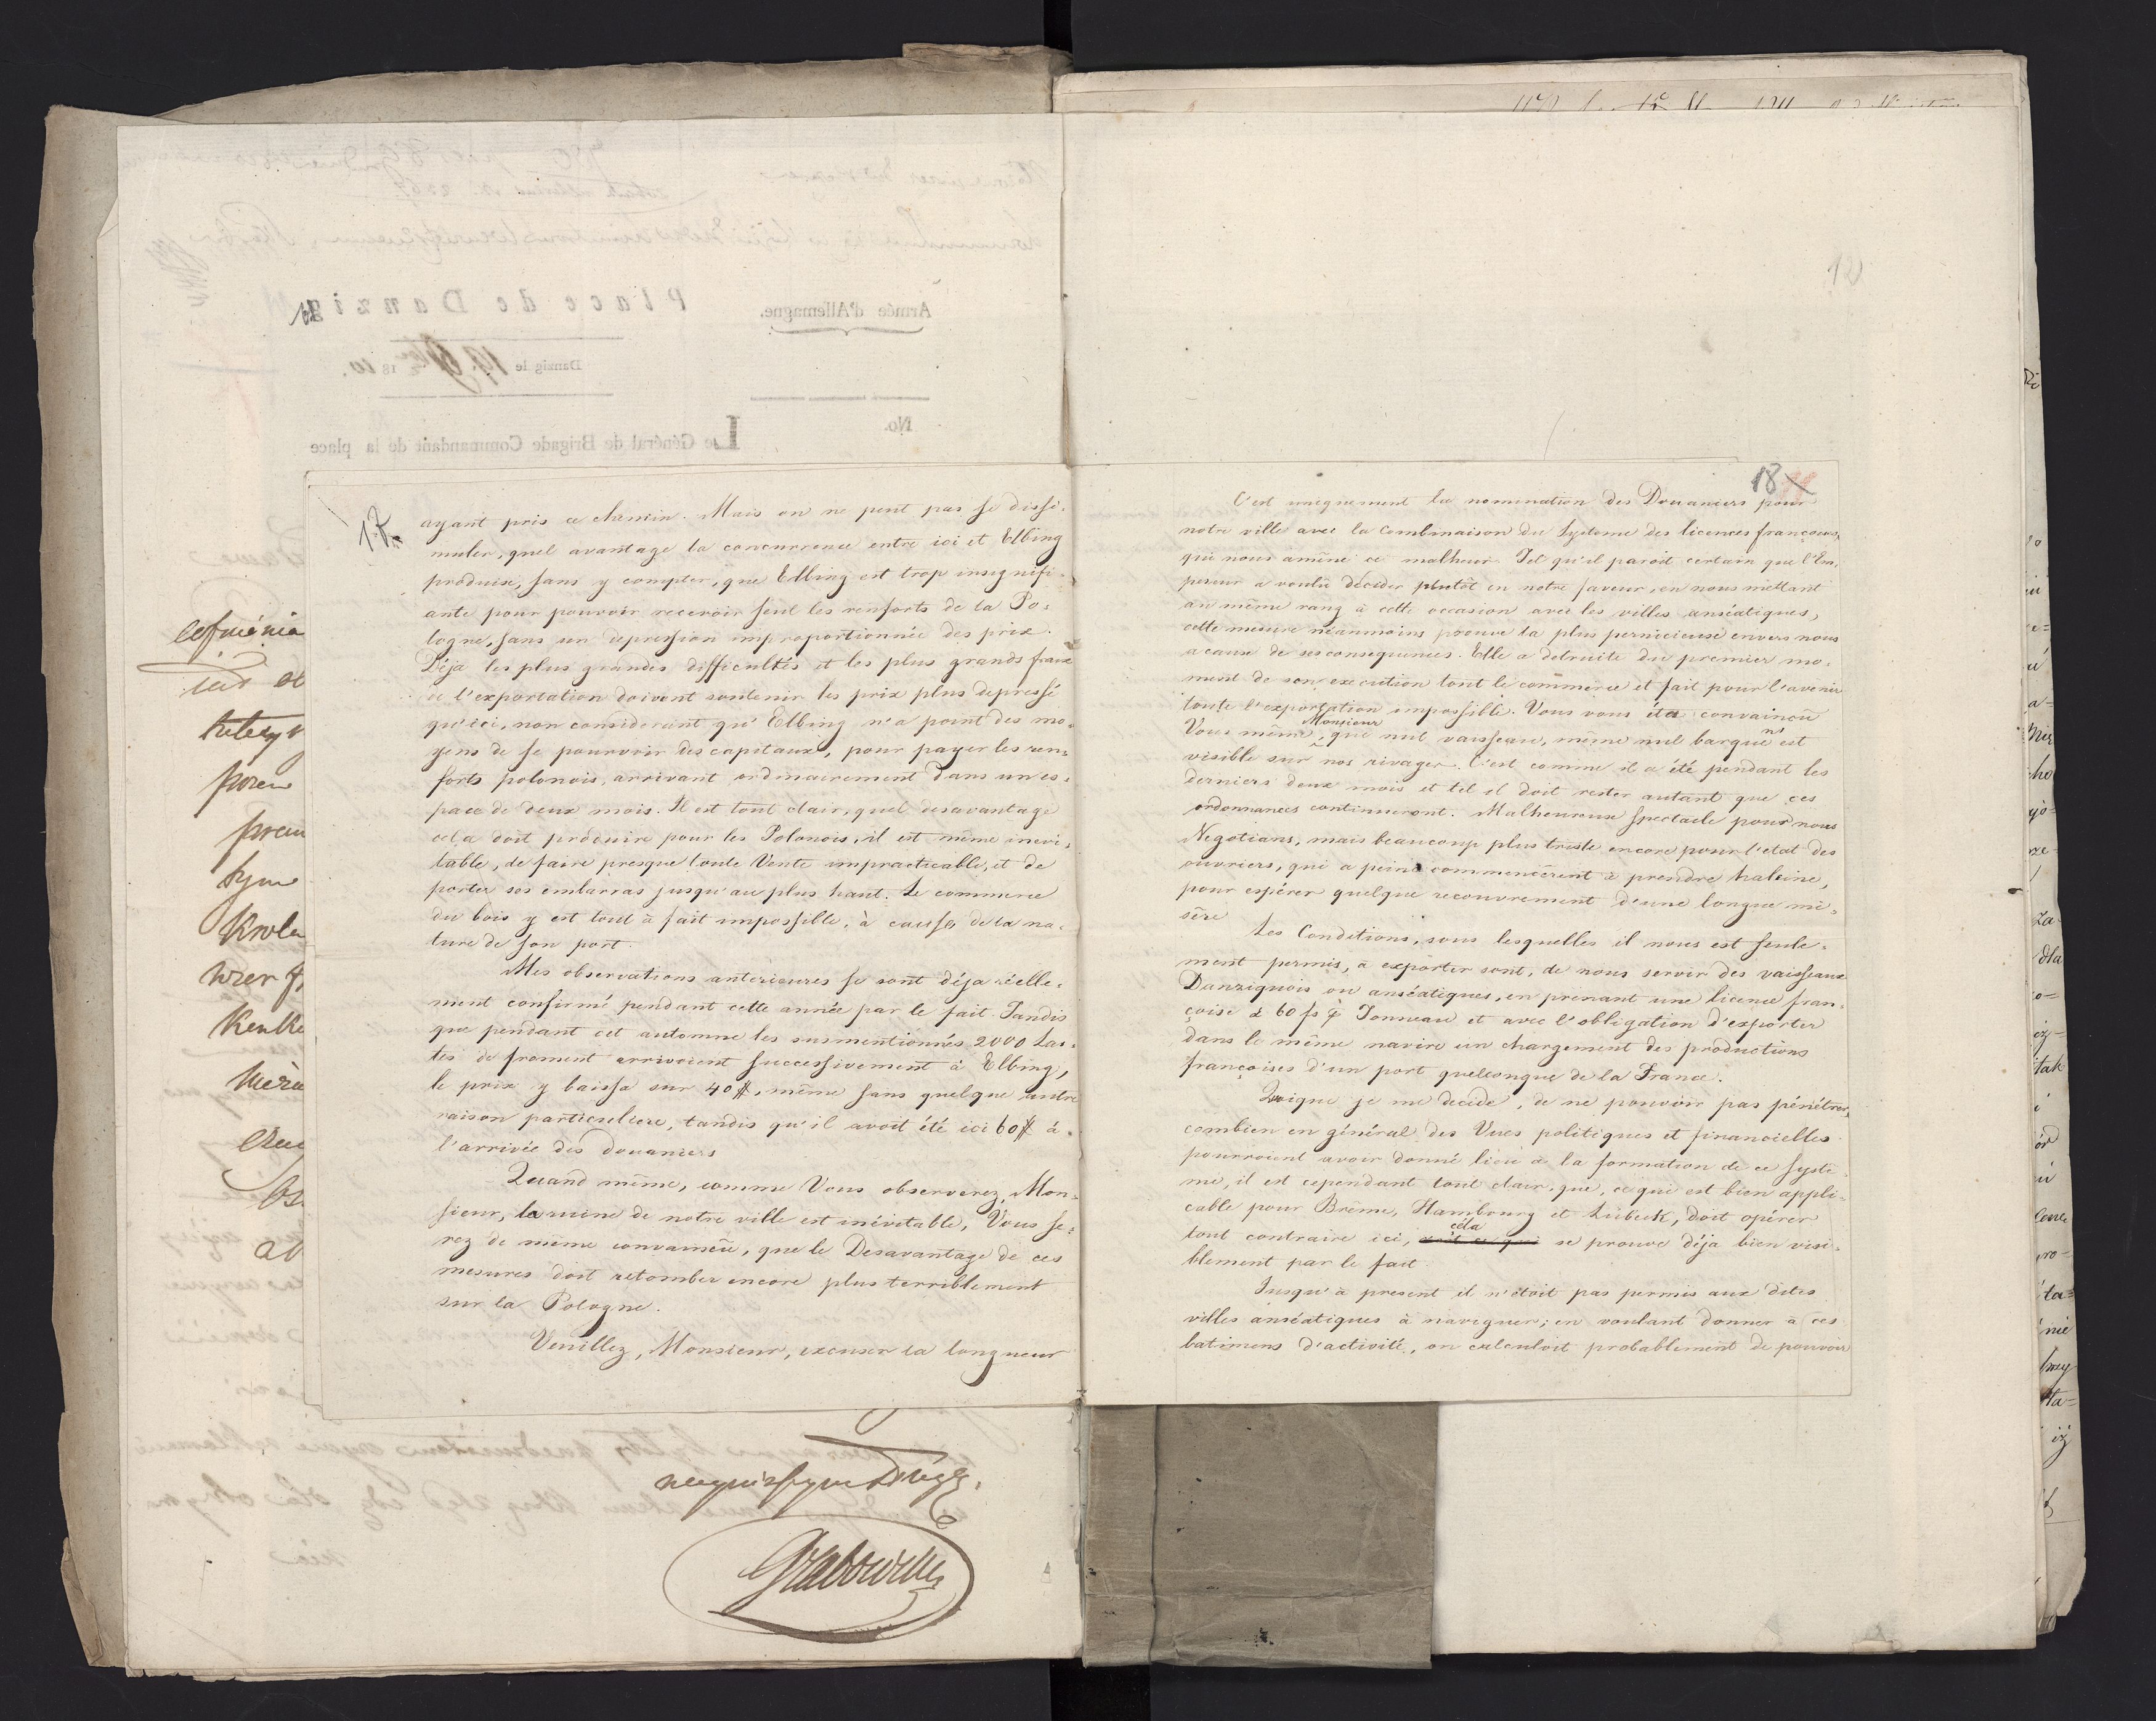 ayant pris ce chemin. Mais on ne peut pas se dissi-
muler, quel avantage la concurrence entre ici et Elbing
produise, sans y compter, que Elbing est trop insignifi-
ante pour pouvoir recevoir seul les renforts de la Po-
logne, sans un depression improportionnée des prix.
Déja les plus grandes difficultés et les plus grands fraix
de l'exportation doivent soutenir les prix plus depressé
qu'ici, non considerant qu'Elbing n'a point des mo-
yens de se pourvoir des capitaux, pour payer les ren-
forts polonois, arrivant ordinairement dans un es-
pace de deux mois. Il est tout clair, quel desavantage
cela doit produire pour les Polonois, il est même inevi-
table, de faire presque toute Vente impracticable, et de
porter ses embarras jusqu'au plus haut. Le commerce
du bois y est tout à fait impossible, à cause de la na-
ture de son port.
Mes observations anterieures se sont déja réelle-
ment confirmé pendant cette année par le fait. Tandis
que pendant cet automne les susmentionnés 2000 Las-
tes de froment arrivoient successivement à Elbing,
le prix y baissa sur 40 #, même sans quelque autre
raison particuliere, tandis qu'il avoit été ici 60 # à
l'arrivée des douaniers
Quand même, comme Vous observerez, Mon-
sieur, la ruine de notre ville est inévitable, Vous se-
rez de même convaincu, que le Desavantage de ces
mesures doit retomber encore plus terriblement
sur la Pologne.
Veuillez, Monsieur, excuser la longueur
18
C'est uniquement la nomination des Douaniers pour
notre ville avec la Combinaison du Systeme des licences françoises,
qui nous amène ce malheur. Tel qu'il paroit certain que l'Em-
pereur a voulu décider plutôt en notre faveur, en nous mettant
au même rang à cette occasion avec les villes anséatiques,
cette mesure néanmoins prouve la plus pernicieuse envers nous
a cause de ses consequences. Elle a detruite du premier mo-
ment de son execution tout le commerce et fait pour l'avenir
toute l'exportation impossible. Vous vous étes convaincu
Vous même, Monsieur que nul vaisseau, même nul barque n'est
visible sur nos rivages. C'est comme il a été pendant les
derniers deux mois et tel il doit rester autant que ces
ordonnances continueront. Malheureux spectacle pour nous
Negotians, mais beaucoup plus triste encore pour l'etat des
ouvriers, qui a peine commencèrent à prendre haleine,
pour espérer quelque recouvrement d'une longue mi-
sère
Les Conditions, sous lesquelles il nous est seule-
ment permis, à exporter sont, de nous servir des vaisseaux
Danziquois ou anséatiques, en prenant une licence fran-
çoise à 60 fs Tonneau et avec l'obligation d'exporter
dans le même navire un chargement des productions
françoises d'un port quelconque de la France.
Quoique je me decide, de ne pouvoir pas pénétrer,
combien en général des Vues politiques et financielles
pourroient avoir donné lieu à la formation de ce systè-
me, il est cependant tout clair, que, ce qui est bien appli-
cable pour Brème, Hambourg et Lübeck, doit opérer
tout contraire ici, céla se prouve déja bien visi-
blement par le fait.
Jusqu'à present il n'étoit pas permis aux dites
villes anséatiques à naviguer; en voulant donner à ces
batimens d'activité, on calculoit probablement de pouvoir
Armée d'Allemagne.
Place de Danzig
Danzig le 19. 1810.
No.
Le Général de Brigade Commandant de la place
Grabowski